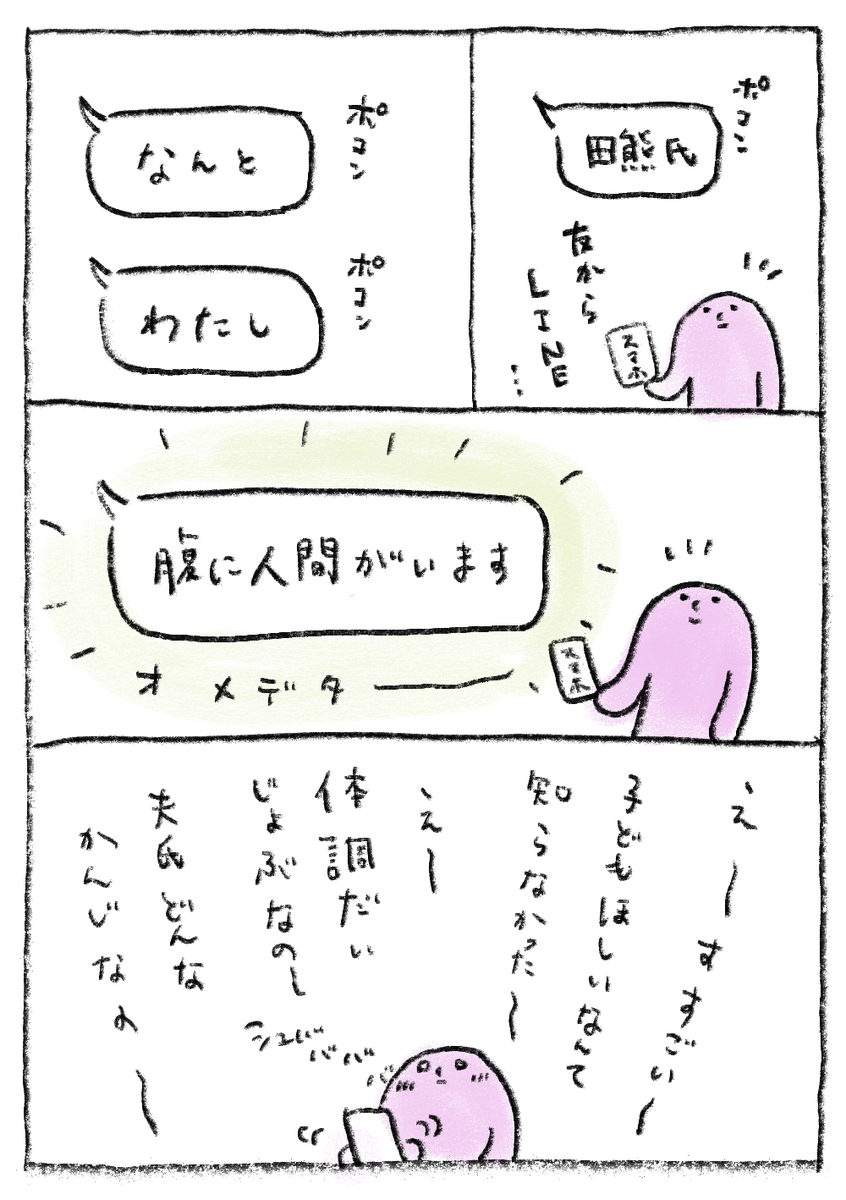 ポコン
田熊氏
友から
LINE
…
スマホ
ポコン
なんと
ポコン
わたし
腹に人間がいます
オメデター
スマホ
え〜
すすごい〜
子どもほしいなんて
知らなかった〜
え〜
体調だい
じょぶなの〜
夫氏どんな
かんじなの〜
シュババババ